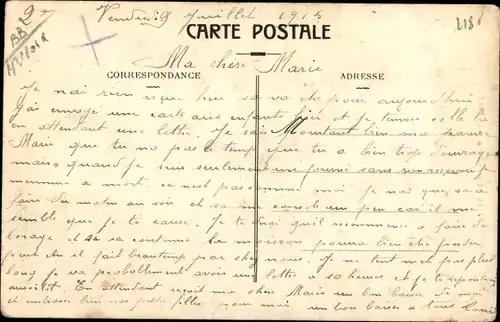 2e
BB
Vendredi 9 Juillet 1915
2180
CARTE POSTALE
Ma chere Marie
CORRESPONDANCE
ADRESSE
Je nai rien reçue hier sa va être pour aujourdhui
j'ai envoye une carte aux enfants hier et je tecris celle la
en attendant une lettre. Je sais ma pauvre
Marie que tu na pas le temps que tu a bien trop douvrage
mais quand je suis seulement une journé sans
a mort. ce nest pas comme moi je nai que sa a
faire du matin au soir et sa me console un peu car il me
semble que je te cause. Je te dirai quil recommence a faire de
lorage et si sa continue la moisson pourra bien être perdu
peut etre il fait beautemp par chez nous. Je ne tent met pas plus
long je va probablement avoir une lettre a 10 heures et je te repondrai
aussitot. En attendant reçoit ma cher Marie un bon baiser de moi
et embrasse bien nos petite filles pour moi un bon baiser a tous